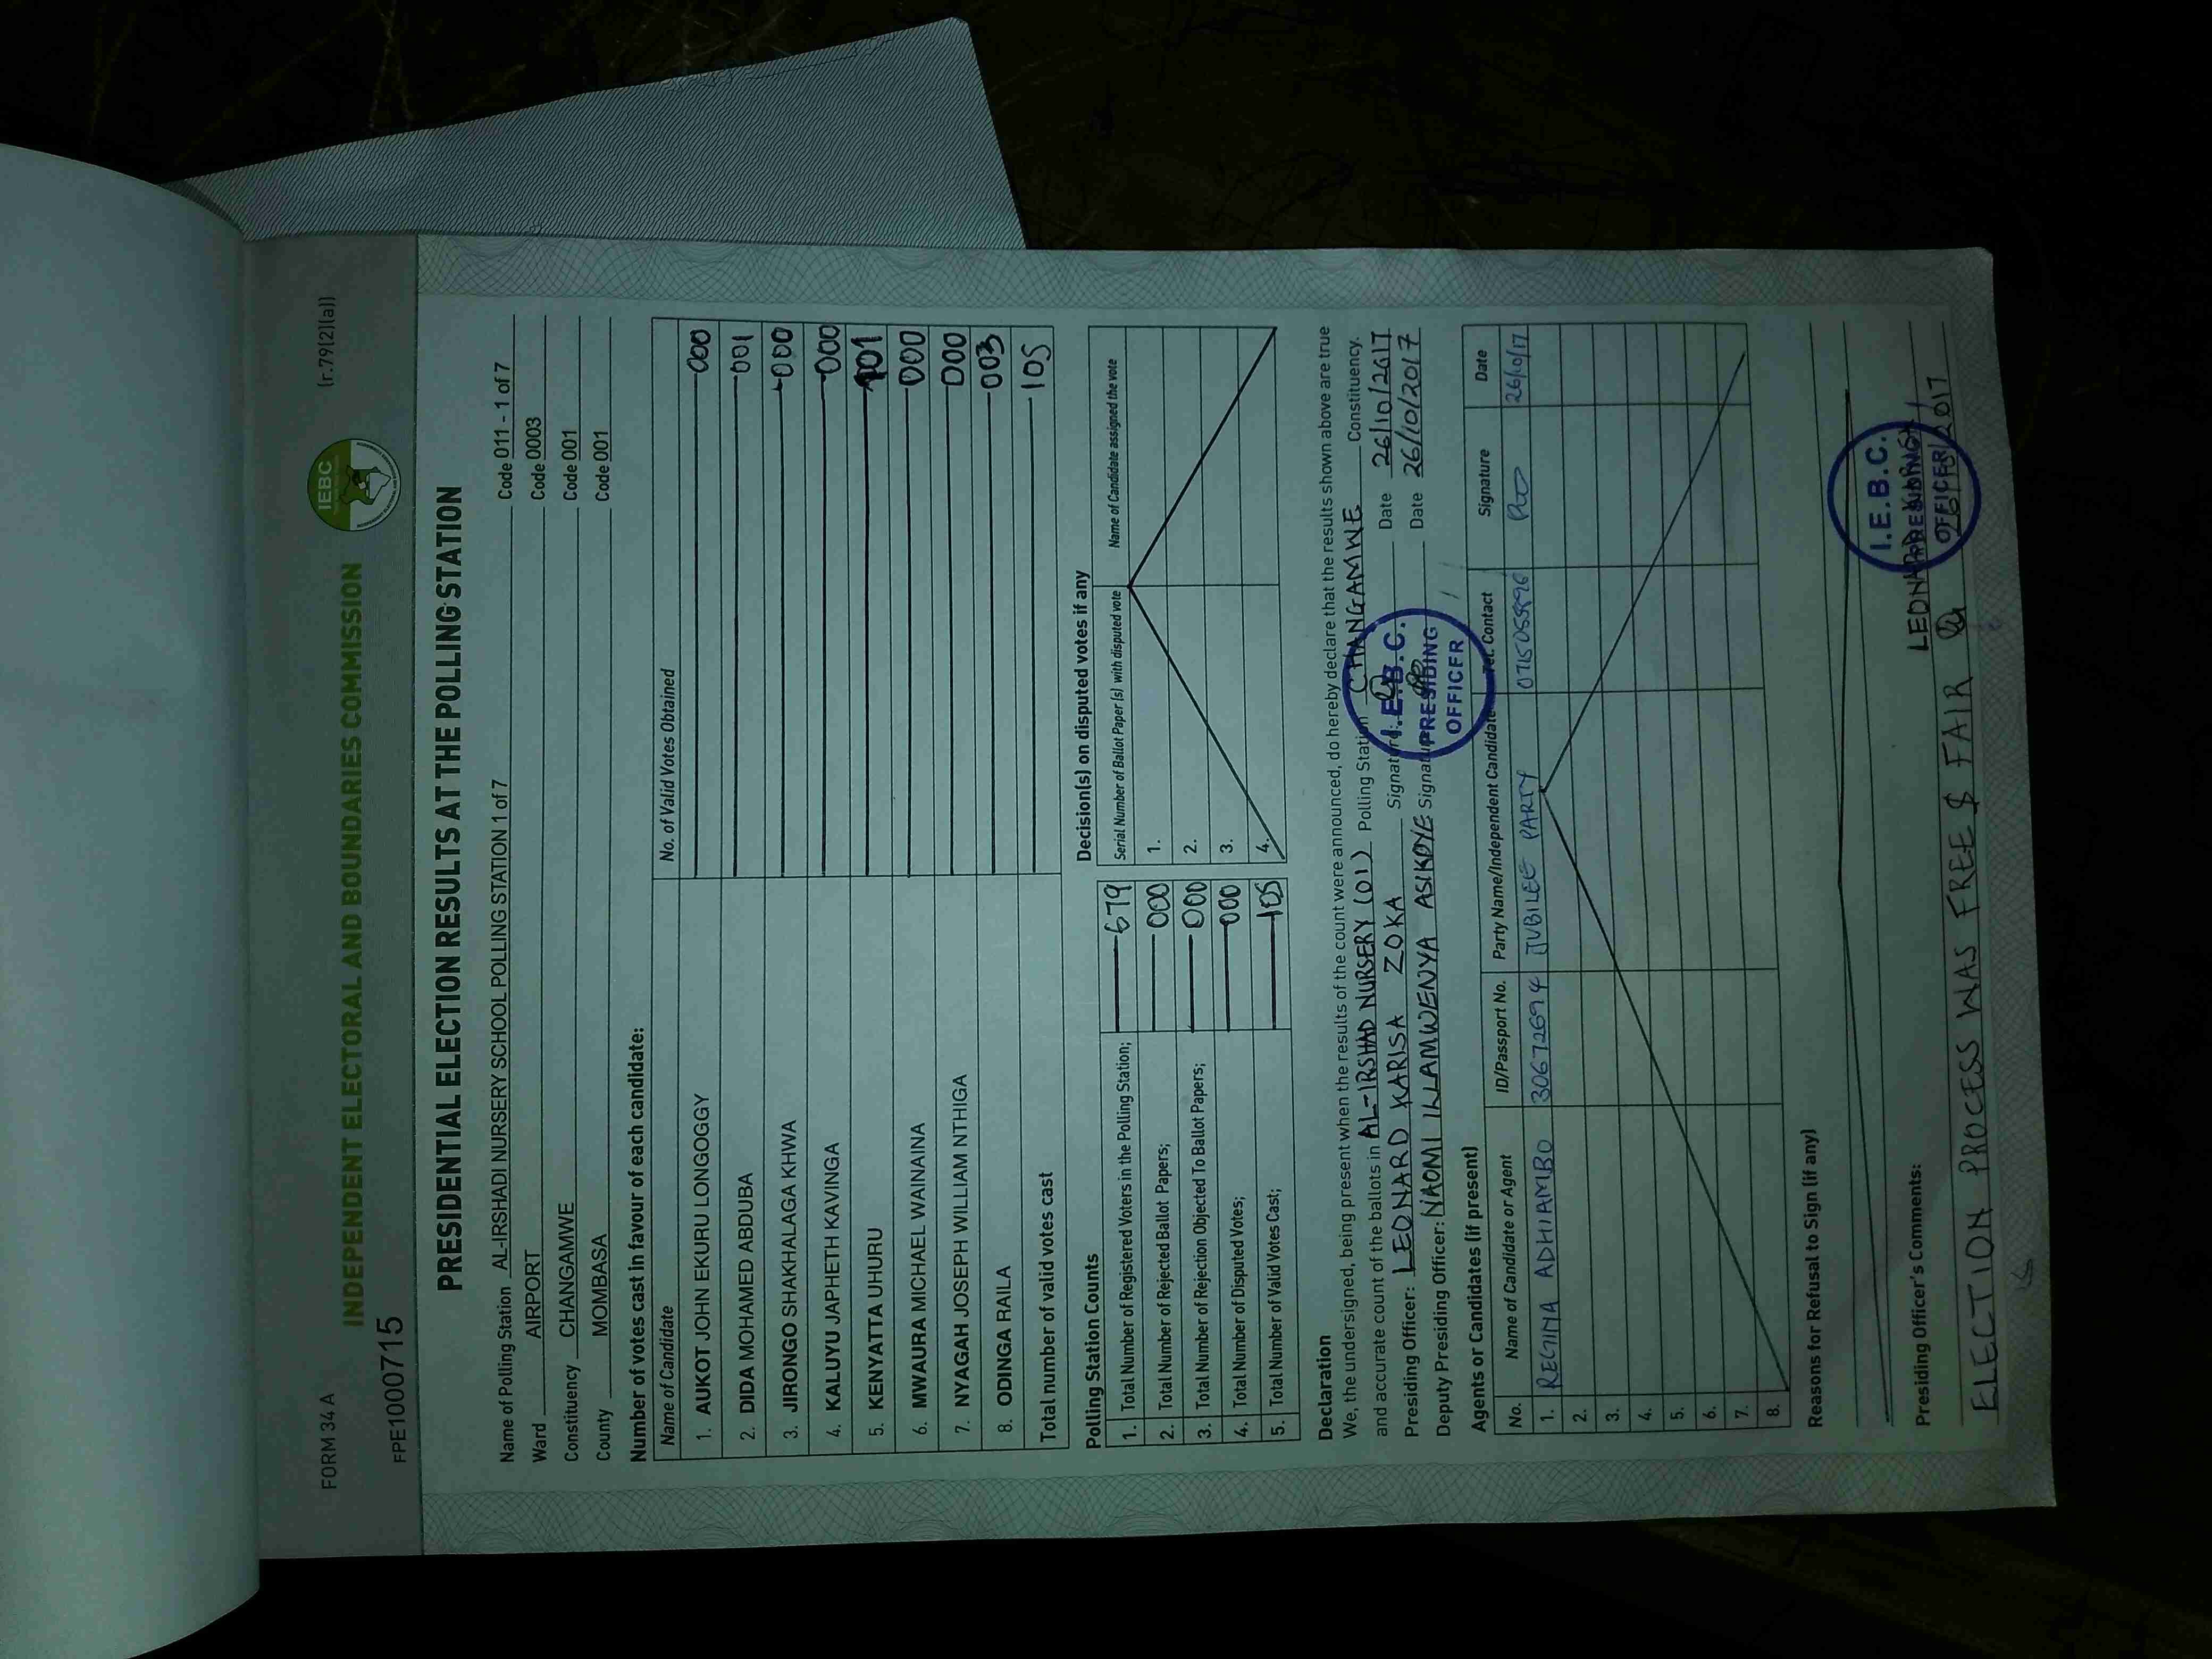 FORM 34 A
(r.79(2)(a))
INDEPENDENT ELECTORAL AND BOUNDARIES COMMISSION
IEBC
FPE1000715
PRESIDENTIAL ELECTION RESULTS AT THE POLLING STATION
Name of Polling Station AL-IRSHADI NURSERY SCHOOL POLLING STATION 1 of 7 Code 011 - 1 of 7
Ward AIRPORT Code 0003
Constituency CHANGAMWE Code 001
County MOMBASA Code 001
Number of votes cast in favour of each candidate:
Name of Candidate No. of Valid Votes Obtained
1. AUKOT JOHN EKURU LONGOGGY 000
2. DIDA MOHAMED ABDUBA 001
3. JIRONGO SHAKHALAGA KHWA 000
4. KALUYU JAPHETH KAVINGA 000
5. KENYATTA UHURU 101
6. MWAURA MICHAEL WAINAINA 000
7. NYAGAH JOSEPH WILLIAM NTHIGA 000
8. ODINGA RAILA 003
Total number of valid votes cast 105
Polling Station Counts
1. Total Number of Registered Voters in the Polling Station; 679
2. Total Number of Rejected Ballot Papers; 000
3. Total Number of Rejection Objected To Ballot Papers; 000
4. Total Number of Disputed Votes; 000
5. Total Number of Valid Votes Cast; 105
Decision(s) on disputed votes if any
Serial Number of Ballot Paper (s) with disputed vote Name of Candidate assigned the vote
1.
2.
3.
4.
Declaration
We, the undersigned, being present when the results of the count were announced, do hereby declare that the results shown above are true
and accurate count of the ballots in AL-IRSHAD NURSERY (01) Polling Station CHANGAMWE Constituency.
Presiding Officer: LEONARD KARISA ZOKA Signature: Date 26/10/2017
Deputy Presiding Officer: NAOMI Signature Date 26/10/2017
I.E.B.C.
PRESIDING
OFFICER
Agents or Candidates (if present)
No. Name of Candidate or Agent ID/Passport No. Party Name/Independent Candidate Tel. Contact Signature Date
1. REGINA ADHIAMBO 30672694 JUBILEE PARTY 26/10/17
2.
3.
4.
5.
6.
7.
8.
Reasons for Refusal to Sign (if any)
Presiding Officer's Comments:
I.E.B.C.
PRESIDING
OFFICER
LEONARD
ELECTION PROCESS WAS FREE & FAIR